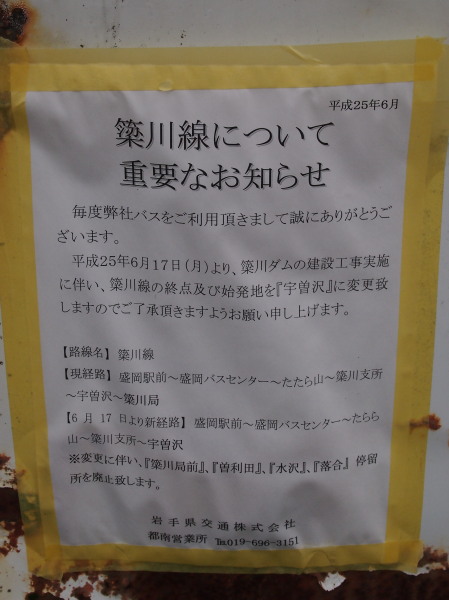 平成25年6月
簗川線について
重要なお知らせ
毎度弊社バスをご利用頂きまして誠にありがとうご
ざいます。
平成25年6月17日(月)より、簗川ダムの建設工事実施
に伴い、簗川線の終点及び始発地を『宇曽沢』に変更致
しますのでご了承頂きますようお願い申し上げます。
【路線名】 簗川線
【現経路】 盛岡駅前～盛岡バスセンター～たたら山～簗川支所
～宇曽沢～簗川局
【6 月 17 日より新経路】 盛岡駅前～盛岡バスセンター～たらら
山～簗川支所～宇曽沢
※変更に伴い、『簗川局前』、『曽利田』、『水沢』、『落合』 停留
所を廃止致します。
岩手県交通株式会社
都南営業所 ℡019-696-3151